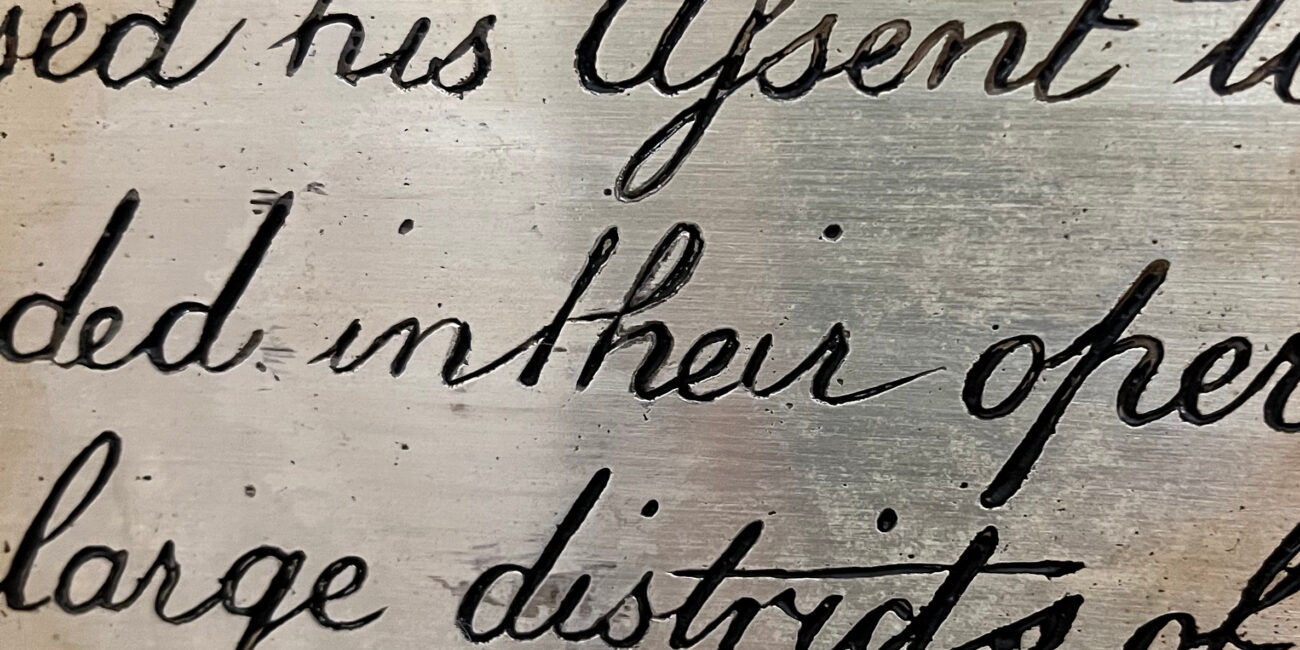 sed his Aſsent t
ded in their oper
large districts of